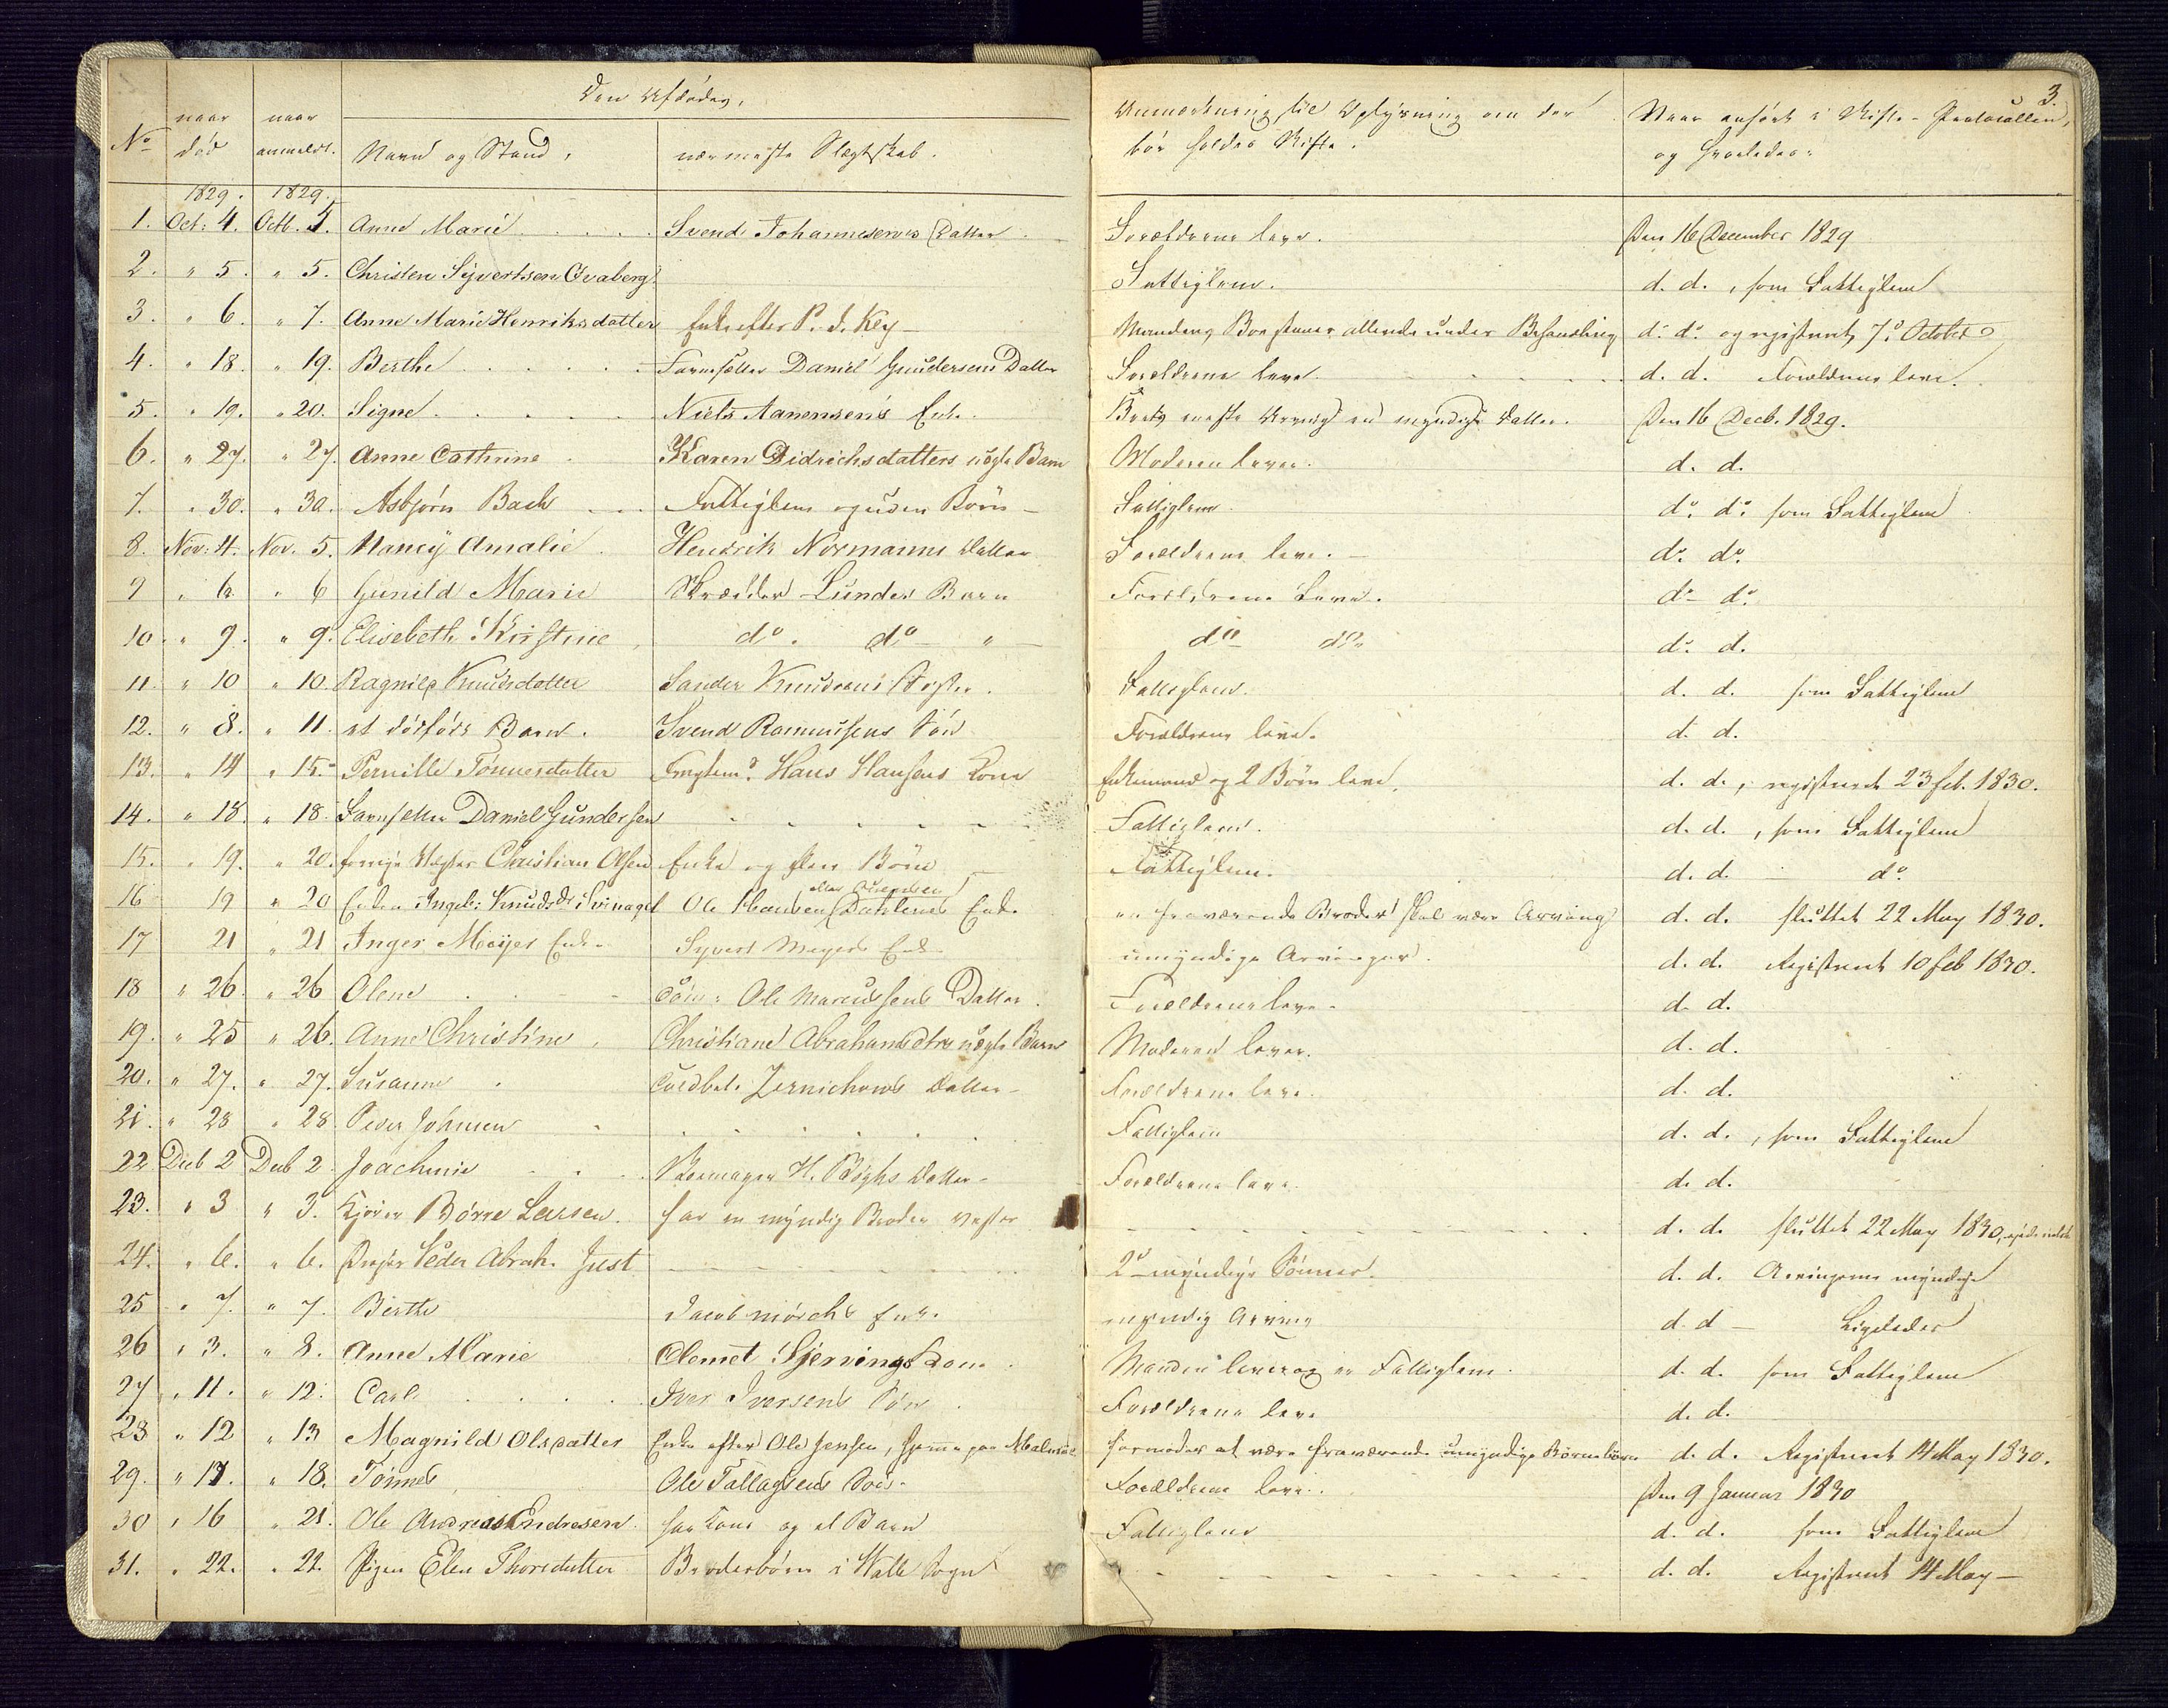 3.
Den Afdødes,
No naar død naar anmeldt. Navn og Stand, nærmeste Slægtskab. Anmærkning til Oplysning om der bør holdes Skifte. Naar anført i Skifte-Protocollen, og hvorledes.
1829. 1829.
1. Oct: 4. Octb. 5. Anne Marie Svend Johannesens Datter Forældrene leve. Den 16 December 1829
2. " 5. " 5. Christen Syvertsen Fattiglem. d. d., som Fattiglem
3. " 6. " 7. Anne Marie Henriksdatter Enke efter P. J. Key Mandens Boe allerede under Behandling do. do. og registreret 7. October
4. " 18. " 19. Berthe Daniel Gundersens Datter Forældrene leve. d. d. Forældrene leve.
5. " 19. " 20. Signe Niels Aanensens Enke. myndige Datter. Den 16 Decb. 1829.
6. " 27. " 27. Anne Cathrine Karen Didrichsdatters uægte Barn Moderen lever. d. d.
7. " 30. " 30. Asbjørn Bach Fattiglem og uden Børn Fattiglem. do. do. som Fattiglem
8. Nov: 4. Nov. 5. Nancy Amalie Hendrik Normanns Datter Forældrene leve. do. do.
9 " 6 " 6 Gunild Marie Skrædder Lundes Barn Forældrene leve. do. do.
10. " 9. " 9. Elisebeth Kirstine do. do. " do. do. do. d.
11. " 10 " 10. Ragnild Knudsdatter Sander Knudsens Søster. Fattiglem. d. d. som Fattiglem
12. " 8. " 11. et dødfødt Barn. Svend Rasmussens Søn Forældrene leve. d. d.
13. " 14 " 15. Pernille Tønnesdatter Hans Hansens Kone Enkemand og 2 Børn leve. d. d., registreret 23 feb. 1830.
14. " 18. " 18. Daniel Gundersen Fattiglem. d. d., som Fattiglem
15. " 19. " 20. Christian Olsen Enke og flere Børn Fattiglem. d. d. do.
16 19 " 20 Enken Ingeb: Knudsdr Svinaget Ole Hansen Enke en fraværende Broder skal være Arving d. d. sluttet 22 May 1830.
17 21 " 21 Inger Meyer Enke Syvert Meyers Enke umyndige Arvinger. d. d. Registreret 10 feb 1830.
18 " 26 " 26 Olene Ole Marcussens Datter. Forældrene leve. d. d.
19. " 25 " 26. Anne Christine Christiane Abrahamsdtrs uægte Barn Moderen lever. d. d.
20. " 27. " 27. Susanne Toldbet. Jernichows Datter Forældrene leve. d. d.
21. " 28 " 28 Peder Johnsen Fattiglem d. d., som Fattiglem
22 Decb 2 Decb 2. Joachmie H. Bøghs Datter Forældrene leve. d. d.
23. " 3 " 3. Børre Larsen. har en myndig Broder d. d. sluttet 22 May 1830,
24. " 6. " 6. Peder Abrah. Just 2 myndige Sønner. d. d. Arvingerne myndige
25 " 7. " 7. Berthe Jacob Mørchs Enke myndig Arving d. d Ligeledes
26 " 3. " 8. Anne Marie Clemet Kone. Manden lever og er Fattiglem. d. d. som Fattiglem
27 " 11. " 12. Carl Iver Iversens Søn Forældrene leve d. d.
28 " 12 " 13 Magnild Olsdatter Enke efter Ole Jensen, hjemme paa Malmøe formodes at være fraværende umyndige Børnebørn d. d. Registreret 14 May 1830.
29. " 17. " 18. Tønnes Ole Tallagsens Søn. Forældrene leve. Den 9 Januar 1830
30 " 16 " 21. Ole Andreas Endresen har Kone og et Barn Fattiglem d. d. som Fattiglem
31. " 22. " 22. Pigen Elen Thorsdatter Broderbørn i Halle Sogn d. d. Registreret 14 May